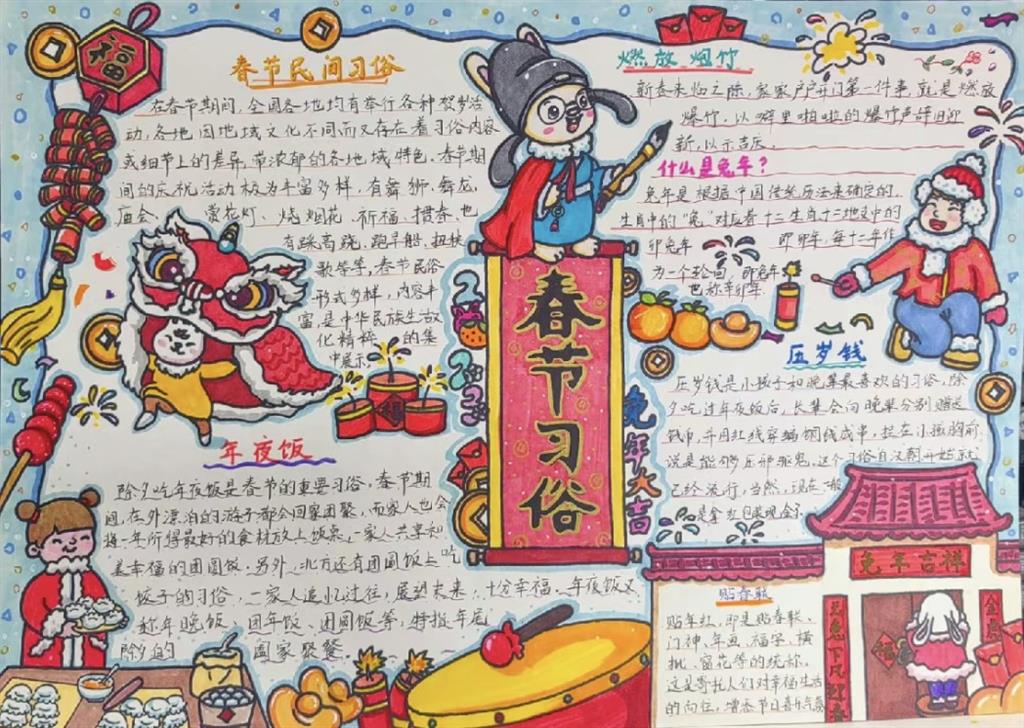 福
春节民间习俗
在春节期间，全国各地均有举行各种贺岁活
动，各地因地域文化不同而又存在着习俗内容
或细节上的差异，带浓郁的各地域特色。春节期
间的庆祝活动极为丰富多样，有舞狮、舞龙、
庙会、赏花灯、烧烟花、祈福、掼春、也
有踩高跷、跑旱船、扭秧
歌等等，春节民俗
形式多样，内容丰
富，是中华民族生活文
化精粹的集
中展示。
福
年夜饭
除夕吃年夜饭是春节的重要习俗，春节期
间，在外漂泊的游子都会回家团聚，而家人也会
将一年所得最好的食材放上饭桌，一家人共享和
美幸福的团圆饭。另外，北方还有团圆饭上吃
饺子的习俗，一家人追忆过往，展望未来，十分幸福。年夜饭又
称年晚饭、团年饭、团圆饭等，特指年尾
除夕的阖家聚餐
春节习俗
2023
兔年大吉
燃放烟竹
新春来临之际，家家户户开门第一件事就是燃放
爆竹，以噼里啪啦的爆竹声辞旧迎
新，以示吉庆。
什么是兔年？
兔年是根据中国传统历法来确定的，
生肖中的“兔”对应着十二生肖十二地支中的
卯兔年 卯卯年，每十二年作
为一个轮回，卯兔年
也称辛卯年
压岁钱
压岁钱是小孩子和晚辈最喜欢的习俗，除
夕吃过年夜饭后，长辈会向晚辈分别赠送
钱币，并用红线穿编铜钱成串，挂在小孩胸前，
说是能够压邪驱鬼。这个习俗自汉朝开始就
已经流行，当然，现在一般
是拿红包装现金。
兔年吉祥
贴春联
贴年红，即是贴春联、
门神、年画、福字、横
批、窗花等的统称。
这是寄托人们对幸福生活
的向往，增添节日喜气氛
福